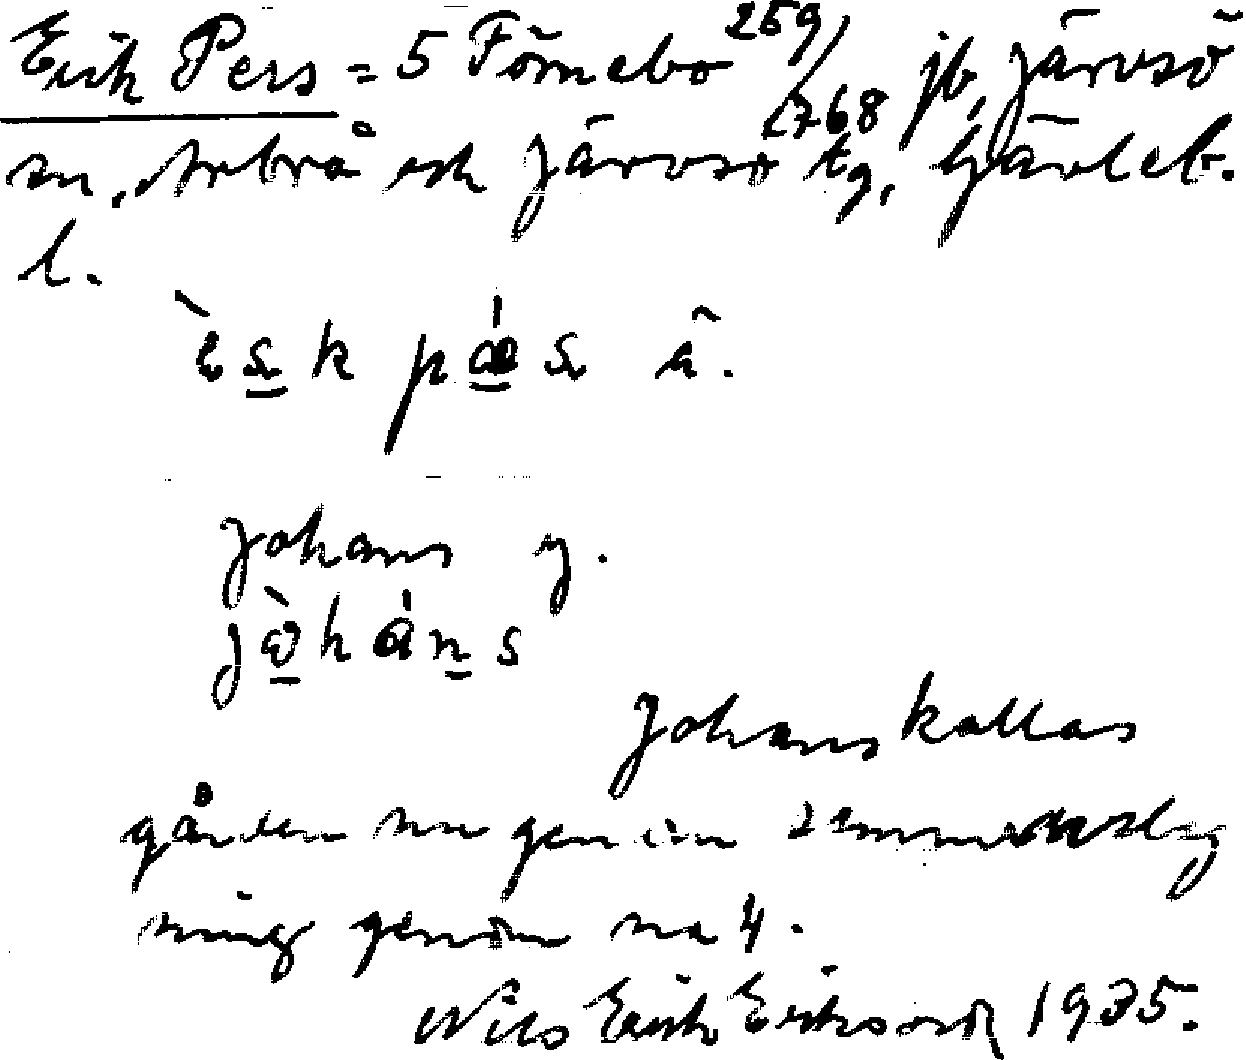 Erik Pers = 5 Förnebo 259/2768 jb, Järvsö
sn, Arbrå och Järvsö tg, Gävleb.
l.
èsk pǽs ä.
Johans g.
jòhán̠s
Johans kallas
gården nu genom
genom na 4.
Nils Erik Eriksson 1935.